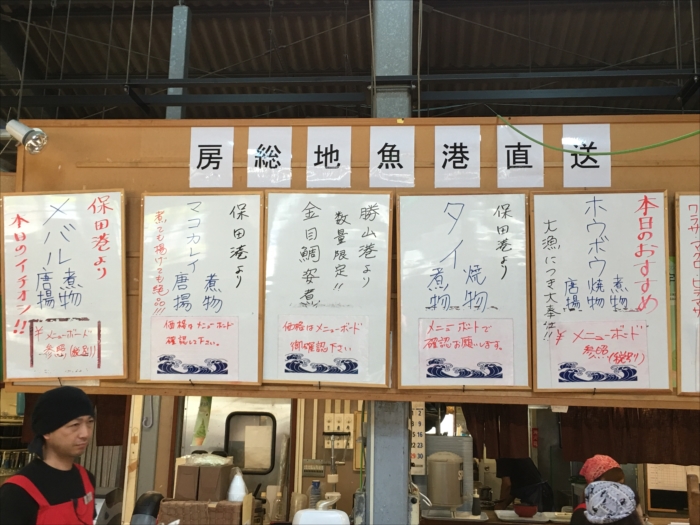 房総地魚港直送
本日のおすすめ
ホウボウ
煮物
焼物
唐揚
大漁につき大奉仕!!
¥メニューボード
参照(税別)
保田港より
タイ
焼物
煮物
メニューボードで
確認お願いします。
勝山港より
数量限定!!
金目鯛姿煮
価格はメニューボード
御確認下さい
保田港より
マコカレイ
煮物
唐揚
煮ても揚げても絶品!!!
価格はメニューボード
確認して下さい。
保田港より
メバル
煮物
唐揚
本日のイチオシ!!
¥メニューボード
参照(税別)